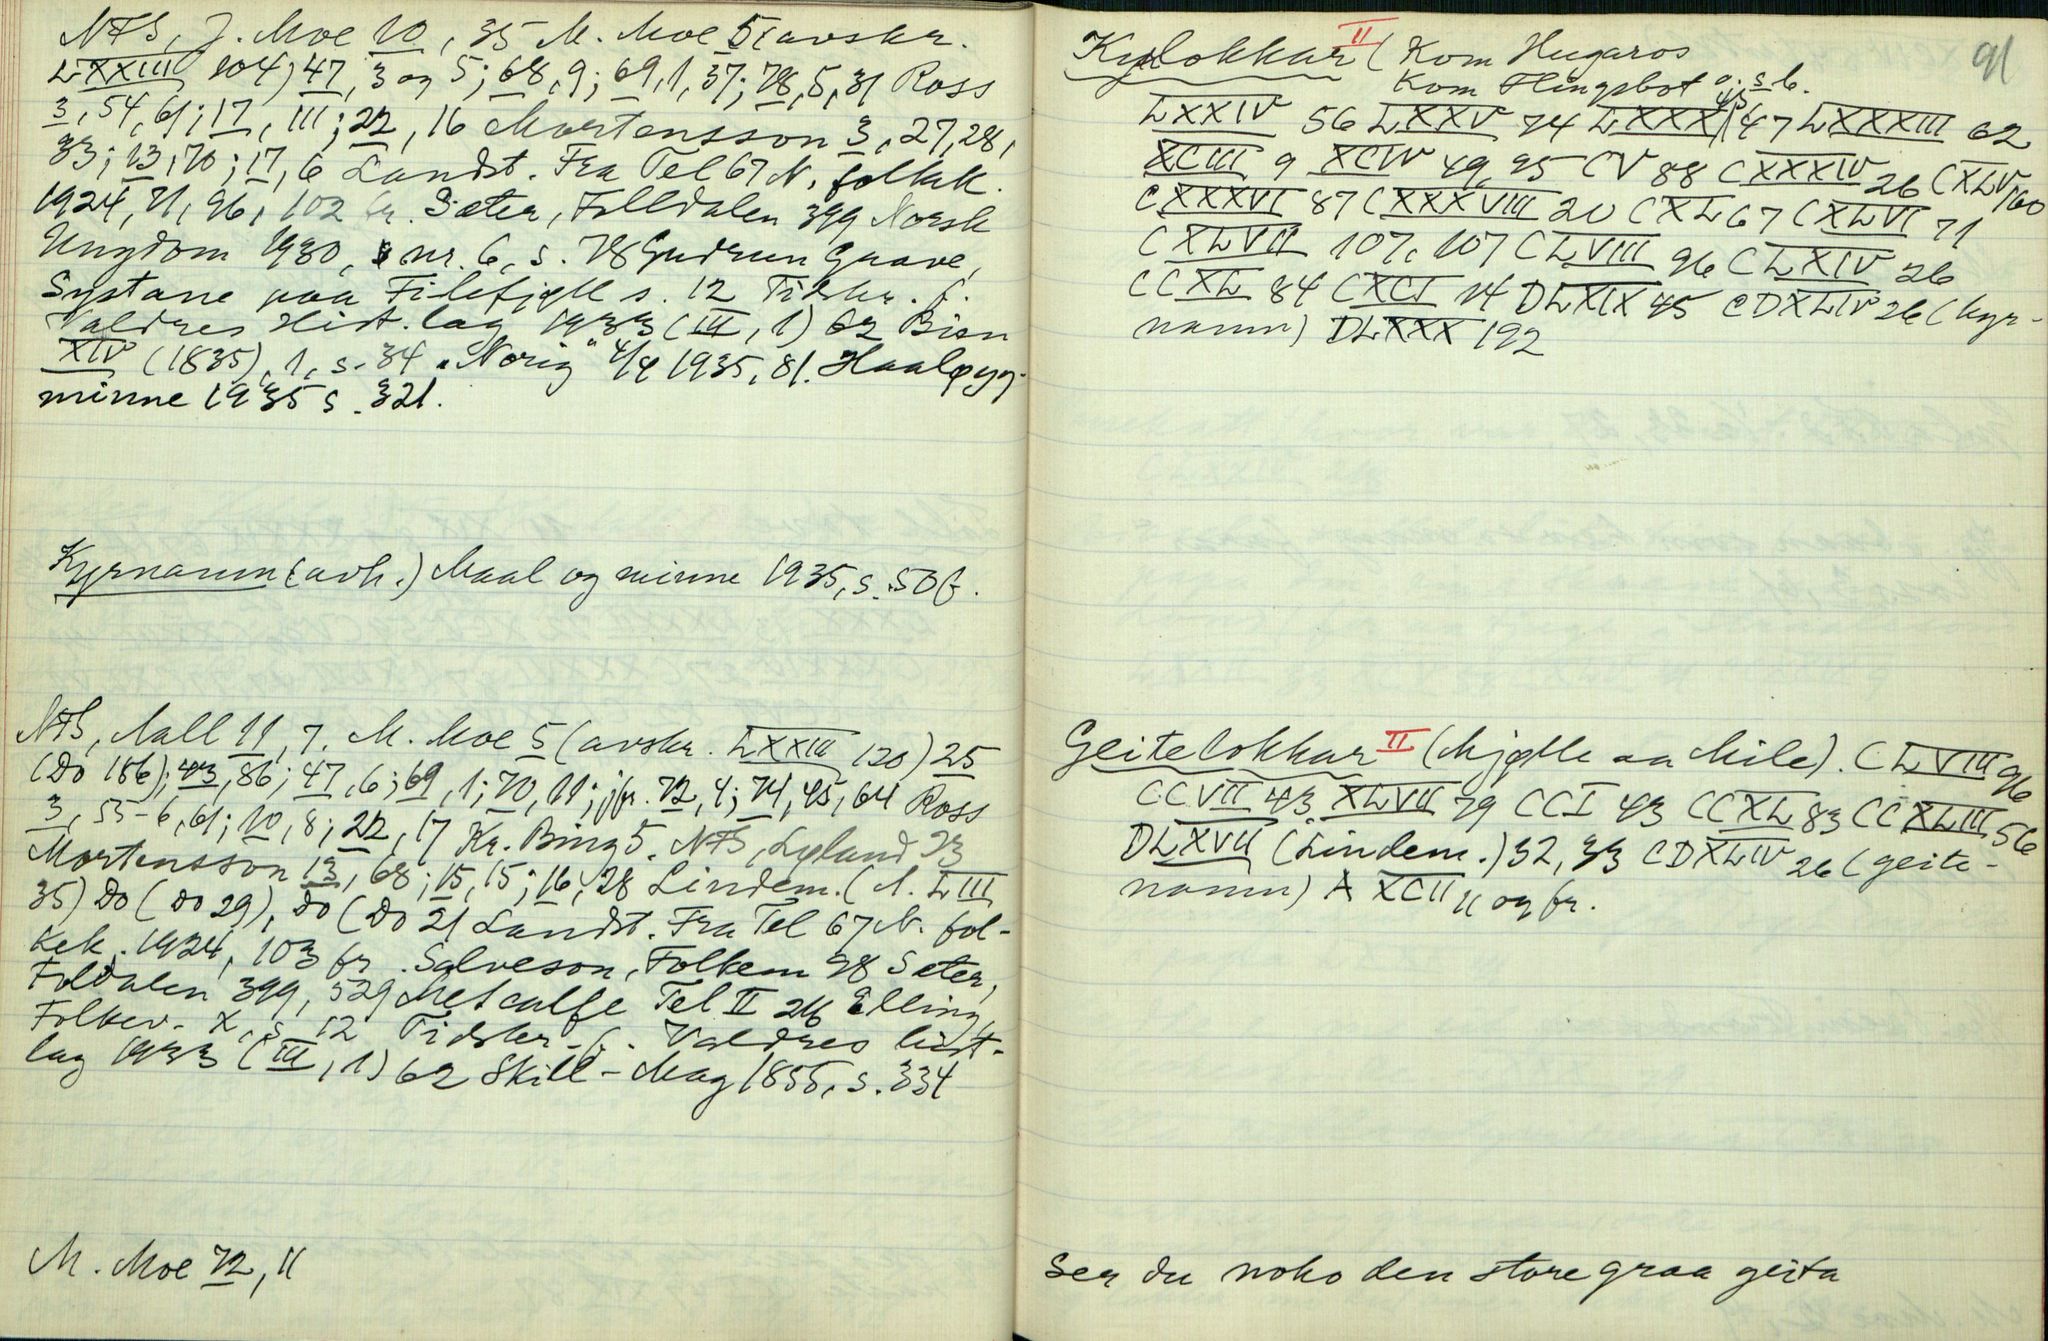 NFS, J. Moe 10, 35 M. Moe 5 (avskr.
LXXIII 104) 47, 3 og 5; 68, 9; 69, 1, 37; 78, 5, 31 Ross
3, 54, 61; 17, 111; 22, 16 Mortensson 3, 27, 28,
33; 13, 70; 17, 6 Landst. Fra Tel 67 N. folkek.
1924, 71, 96, 102 fr. Sæter, Folldalen 399 Norsk
Ungdom 1930, nr. 6, s. 78 Gudrun Grave,
Systane paa Filefjell s. 12 Tidskr. f.
Valdres Hist. lag 1933 (III, 1) 62 Bien
XIV (1835), 1, s. 34 "Norig" 4/4 1935, 81. Haaløyg-
minne 1935 s. 321.
Kyrnamn (avh.) Maal og minne 1935, s. 50 f.
NFS, Aall 11, 7. M. Moe 5 (avskr. LXXIII 120) 25
(Do 156); 43, 86; 47, 6; 69, 1; 70, 11; jfr. 72, 4; 74, 45, 64 Ross
3, 55-6, 61; 10, 8; 22, 17 Kr. Bing 5. NFS, Lyland 23
Mortensson 13, 68; 15, 15; 16, 28 Lindem. (A. LIII
35) Do (Do 29), Do (Do 21 Landst. Fra Tel 67 N. fol-
kek. 1924, 103 fr. Salveson, Folkem 98 Sæter,
Foldalen 399, 529 Metcalfe Tel II 26 Elling,
Folkev. X, s. 12 Tidskr. f. Valdres hist.
lag 1933 (III, 1) 62 Skill-Mag 1855, s. 334
M. Moe 72, 11
91
Kyrlokkar II (Kom Hugaros
Kom Flingsbot o. s. b.
LXXIV 56 LXXV 74 LXXXI 47 LXXXIII 62
XCIII 9 XCIV 49, 95 CV 88 CXXXIV 26 CXLV 160
CXXXVI 87 CXXXVIII 20 CXL 67 CXLVI 71
CXLVII 107, 107 CLVIII 96 CLXIV 26
CCXL 84 CXCI 14 DLXIX 45 CDXLIV 26 (kyr-
namn) DLXXX 192
Geitelokkar II (Mjølle aa Mile). CLVIII 96
CCVII 43 XLVII 79 CCI 43 CCXL 83 CCXLIII 56
DLXVII (Lindem.) 32, 33 CDXLIV 26 (geite-
namn) A XCII 11 og fr.
Ser du noko den store graa geita